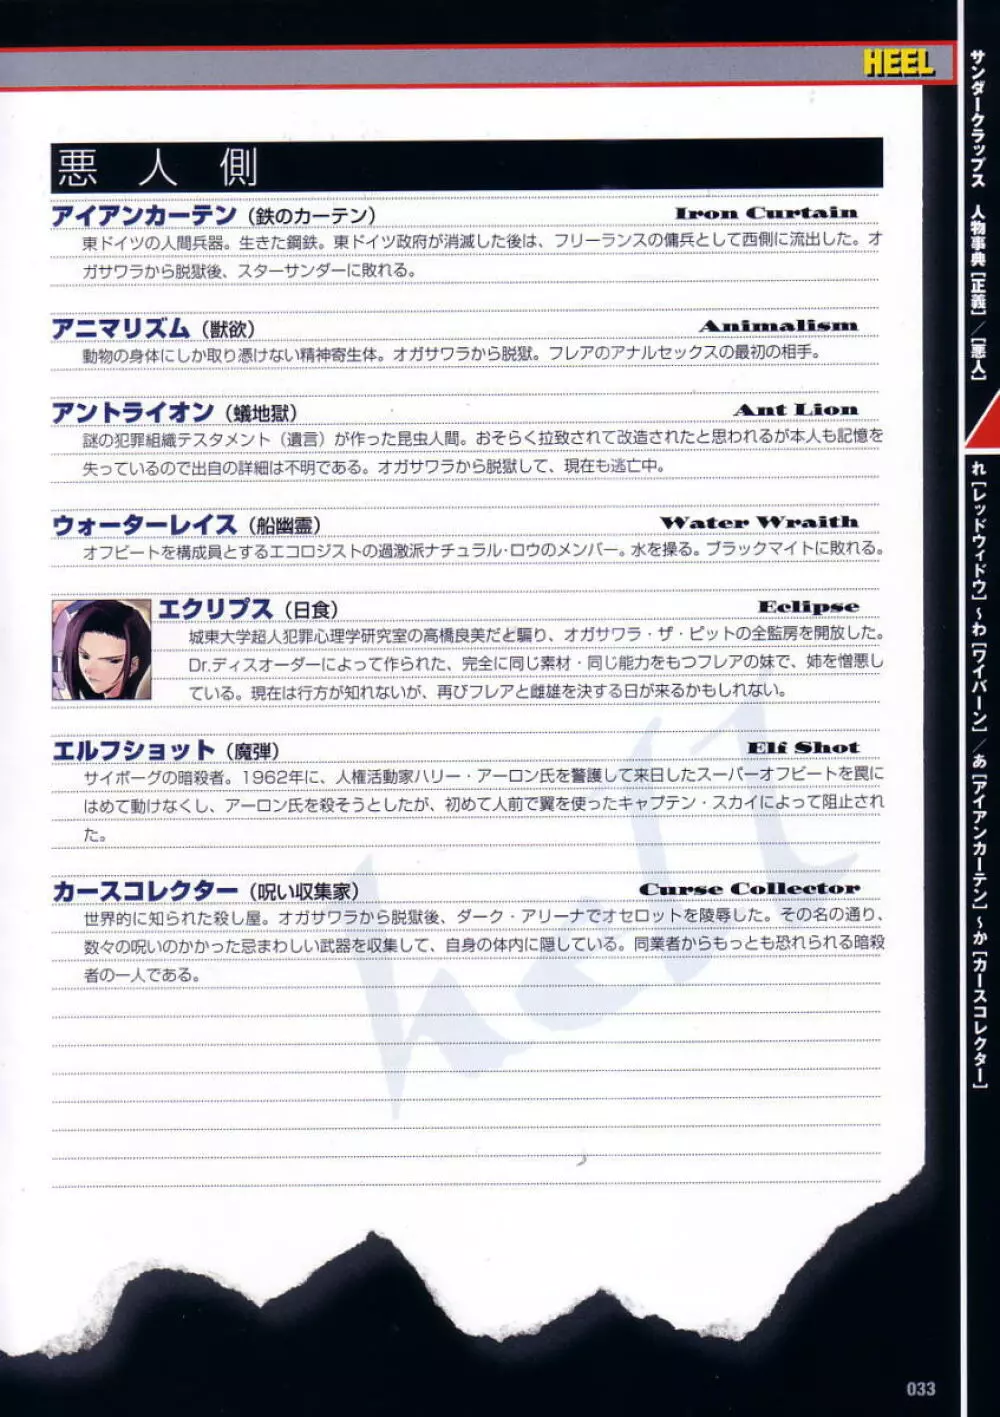 HEEL
悪人側
アイアンカーテン（鉄のカーテン） Iron Curtain
東ドイツの人間兵器。生きた鋼鉄。東ドイツ政府が消滅した後は、フリーランスの傭兵として西側に流出した。オ
ガサワラから脱獄後、スターサンダーに敗れる。
アニマリズム（獣欲） Animalism
動物の身体にしか取り憑けない精神寄生体。オガサワラから脱獄。フレアのアナルセックスの最初の相手。
アントライオン（蟻地獄） Ant Lion
謎の犯罪組織テスタメント（遺言）が作った昆虫人間。おそらく拉致されて改造されたと思われるが本人も記憶を
失っているので出自の詳細は不明である。オガサワラから脱獄して、現在も逃亡中。
ウォーターレイス（船幽霊） Water Wraith
オフビートを構成員とするエコロジストの過激派ナチュラル・ロウのメンバー。水を操る。ブラックマイトに敗れる。
エクリプス（日食） Eclipse
城東大学超人犯罪心理学研究室の高橋良美だと騙り、オガサワラ・ザ・ピットの全監房を開放した。
Dr.ディスオーダーによって作られた、完全に同じ素材・同じ能力をもつフレアの妹で、姉を憎悪し
ている。現在は行方が知れないが、再びフレアと雌雄を決する日が来るかもしれない。
エルフショット（魔弾） Elf Shot
サイボーグの暗殺者。1962年に、人権活動家ハリー・アーロン氏を警護して来日したスーパーオフビートを罠に
はめて動けなくし、アーロン氏を殺そうとしたが、初めて人前で翼を使ったキャプテン・スカイによって阻止され
た。
カースコレクター（呪い収集家） Curse Collector
世界的に知られた殺し屋。オガサワラから脱獄後、ダーク・アリーナでオセロットを陵辱した。その名の通り、
数々の呪いのかかった忌まわしい武器を収集して、自身の体内に隠している。同業者からもっとも恐れられる暗殺
者の一人である。
hell
サンダークラップス 人物事典［正義］／［悪人］
れ［レッドウィドウ］～わ［ワイバーン］／あ［アイアンカーテン］～か［カースコレクター］
033